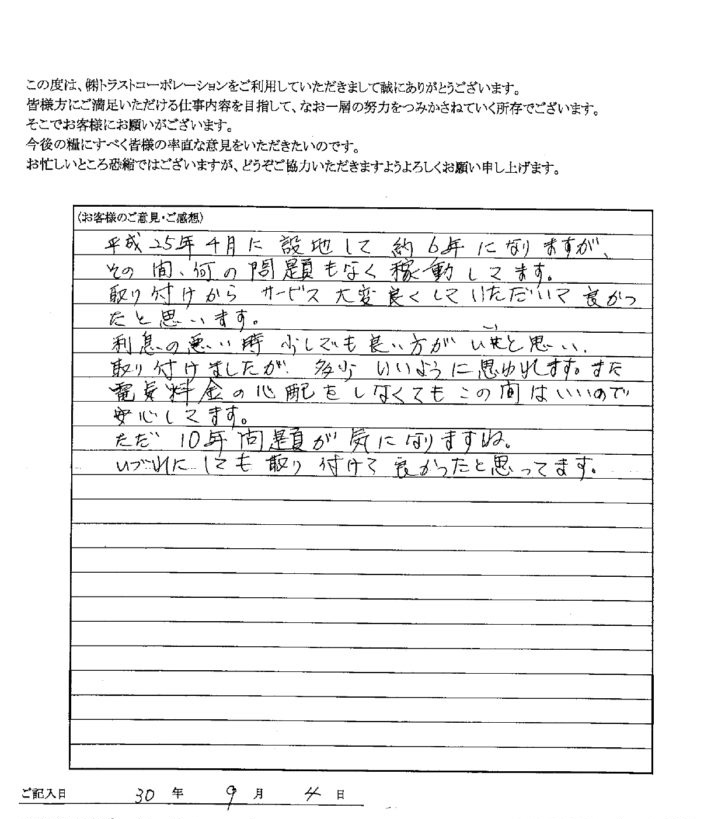 この度は、㈱トラストコーポレーションをご利用していただきまして誠にありがとうございます。
皆様方にご満足いただける仕事内容を目指して、なお一層の努力をつみかさねていく所存でございます。
そこでお客様にお願いがございます。
今後の糧にすべく皆様の率直な意見をいただきたいのです。
お忙しいところ恐縮ではございますが、どうぞご協力いただきますようよろしくお願い申し上げます。
(お客様のご意見・ご感想)
平成25年4月に設地して約6年になりますが、
その間、何の問題もなく稼動してます。
取り付けから サービス大変良くしていただいて良かっ
たと思います。
利息の悪い時 少しでも良い方がいいと思い、
取り付けましたが 多少いいように思われます。また
電気料金の心配をしなくてもこの間はいいので
安心してます。
ただ 10年問題が気になりますね。
いづれにしても取り付けて良かったと思ってます。
ご記入日 30 年 9 月 4 日